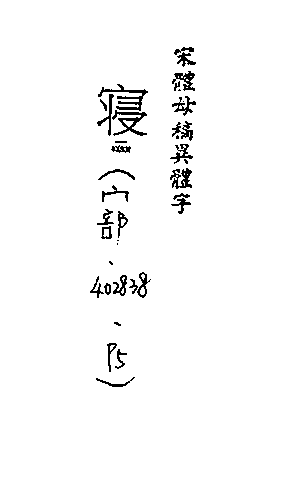 宋體母稿異體字
寝
(宀部、402838、P5)